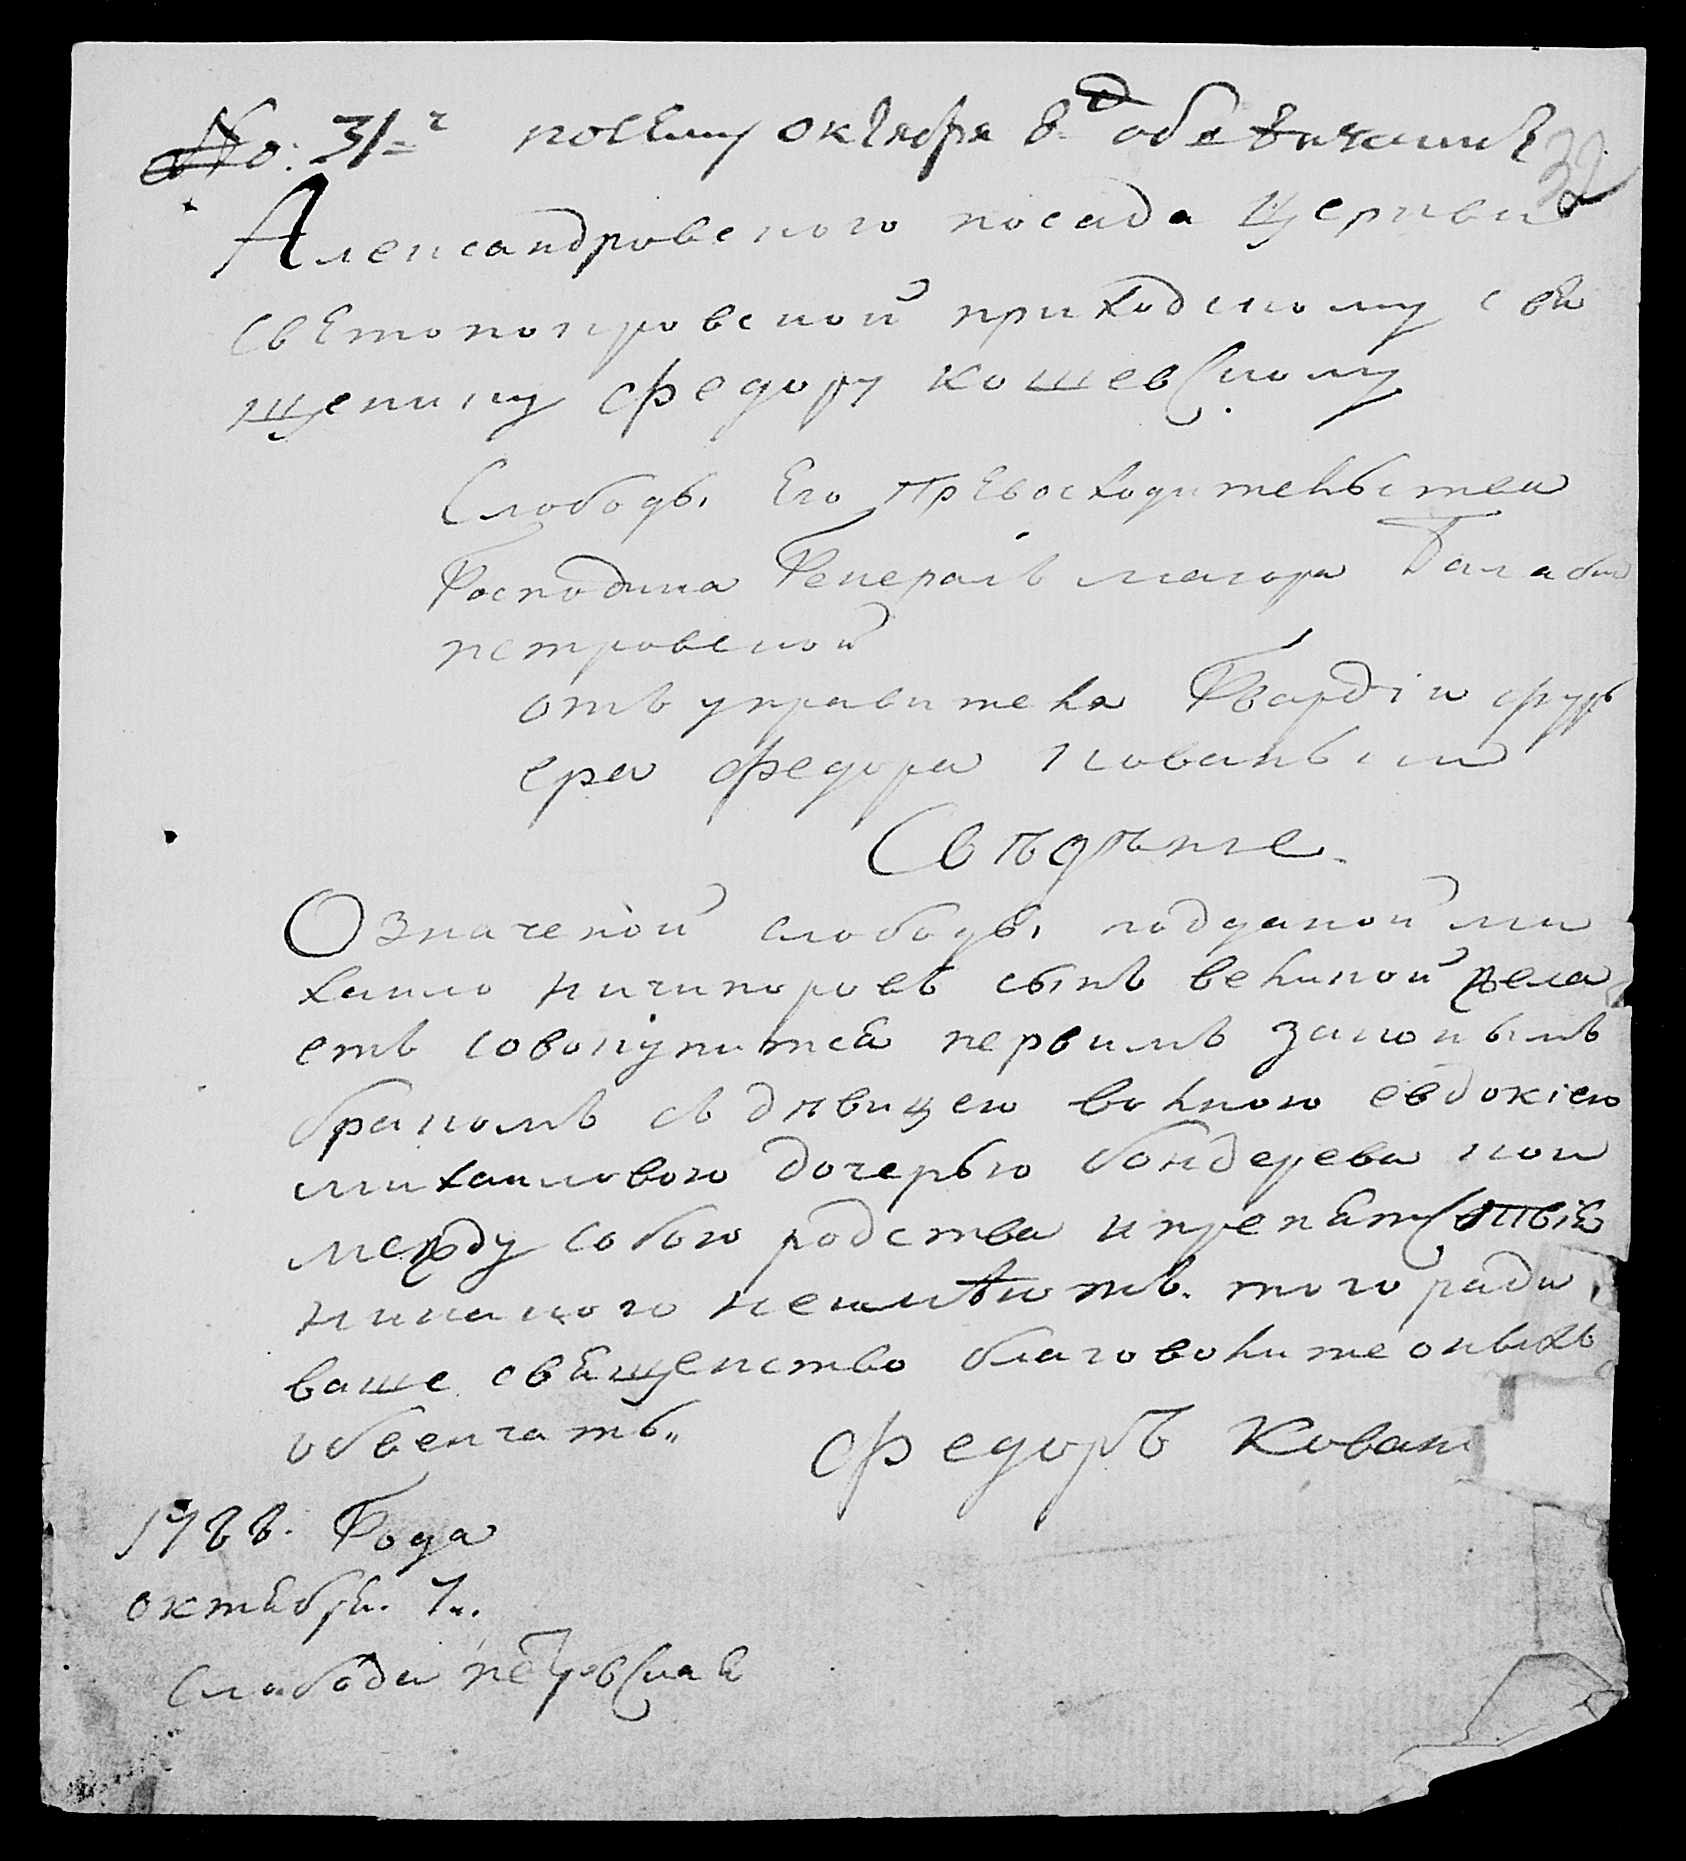 No: 31=г посему октября 8=д обвенчаны
32
Александровского посада церкви
светопокровской приходскому свя
щенику федору кошевскому
Слободы Его превосходительства
Господина Генералъ маиора Балаби
петровской
отъ управителя Гвардіи фурь
ера федора кованьки
Свѣдѣние
Означеной слободы подданой ми
хаило ничипоровъ сынъ великой жела
етъ совокупится первимъ законымъ
бракомъ съ дѣвицею волною евдокіею
михаиловою дочерью бондерева кои
между собою родства и препятствия
никакого неимѣютъ. того ради
ваше священство благоволите оныхъ
обвенчать„
федоръ Кован
1788. Года
октября. 7„.
Слободи петровская